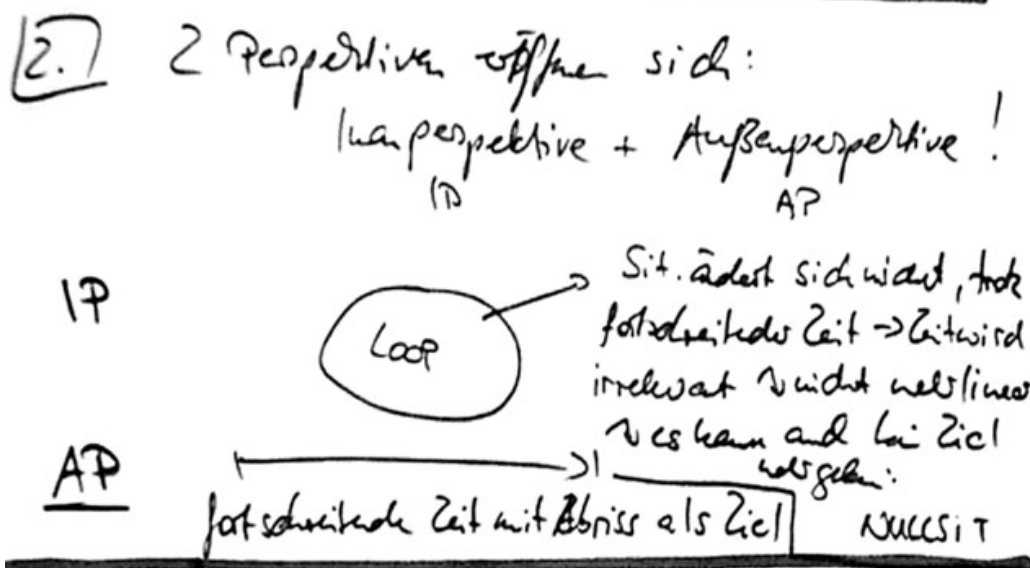 2. 2 Perspektiven eröffnen sich:
Innenperspektive + Außenperspektive!
IP AP
IP
LOOP
Sit. ändert sich nicht, trotz
fortschreitender Zeit -> Zeit wird
irrelevant ↝ nicht mehr linear
↝ es kann auch kein Ziel
mehr geben:
AP
fortschreitende Zeit mit Abriss als Ziel
NULLSIT